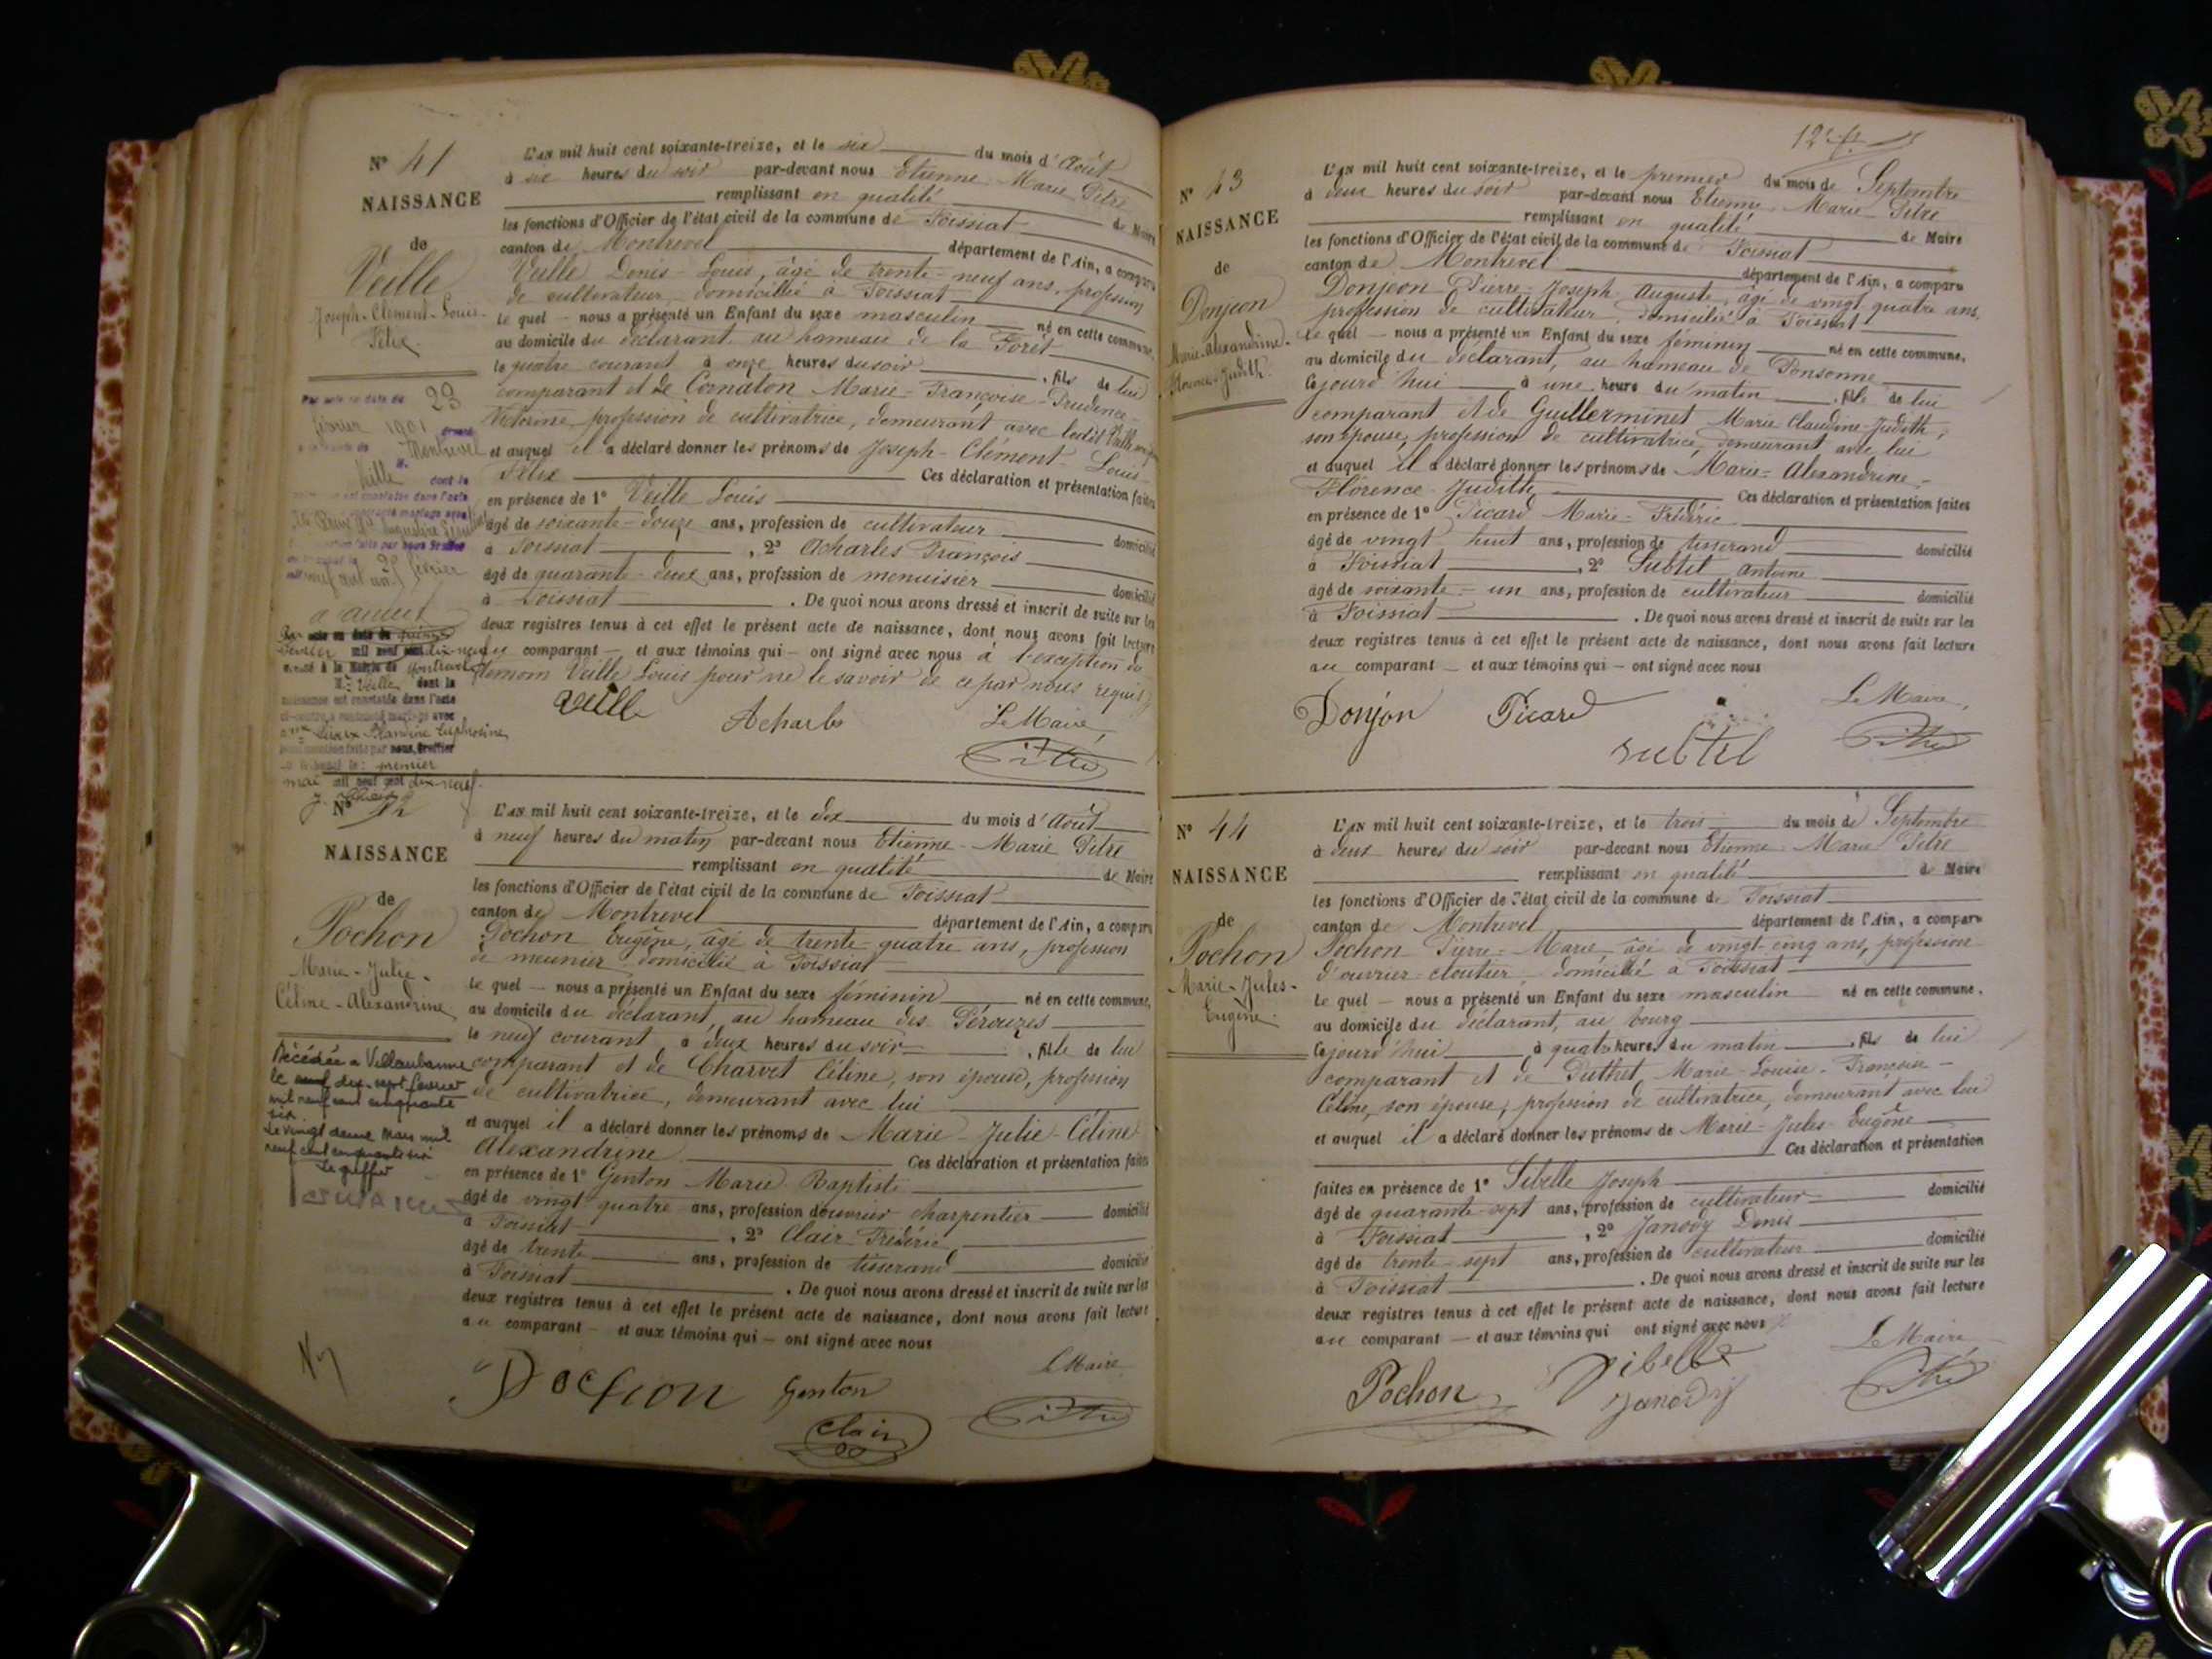 N° 41
NAISSANCE
de
Veille
Joseph-Clément-Louis-
Félix.
L'AN mil huit cent soixante-treize, et le six du mois d'Août
à six heures du soir par-devant nous Etienne-Marie Pitre
remplissant en qualité de Maire
les fonctions d'Officier de l'état civil de la commune de Foissiat
canton de Montrevel département de l'Ain, a comparu
Veille Denis-Louis, âgé de trente-neuf ans, profession
de cultivateur, domicilié à Foissiat
le quel nous a présenté un Enfant du sexe masculin né en cette commune,
au domicile du déclarant, au hameau de la Forêt
le quatre courant à onze heures du soir, fils de lui
comparant et de Cornaton Marie-Françoise-Prudence-
Victorine, profession de cultivatrice, demeurant avec ledit Veille
et auquel il a déclaré donner les prénoms de Joseph-Clément-Louis-
Félix Ces déclaration et présentation faites
en présence de 1° Veille Louis
âgé de soixante-douze ans, profession de cultivateur domicilié
à Foissiat, 2° Acharles François
âgé de quarante-deux ans, profession de menuisier domicilié
à Foissiat. De quoi nous avons dressé et inscrit de suite sur les
deux registres tenus à cet effet le présent acte de naissance, dont nous avons fait lecture
au comparant et aux témoins qui ont signé avec nous à l'exception du
témoin Veille Louis pour ne le savoir de ce par nous requis
Veille Acharles Le Maire,
Pitre
Par acte en date du 23
février 1901
Montrevel
M. Veille dont la
février
Par acte en date du quinze
février mil neuf cent dix-neuf
dressé à la Mairie de Montrevel
M. Veille dont la
naissance est constatée dans l'acte
ci-contre a contracté mariage avec
Blandine Euphrosine
mention faite par nous, Greffier
premier
mai mil neuf cent dix-neuf.
N° 42
NAISSANCE
de
Pochon
Marie-Julie-
Céline-Alexandrine
L'AN mil huit cent soixante-treize, et le dix du mois d'Août
à neuf heures du matin par-devant nous Etienne-Marie Pitre
remplissant en qualité de Maire
les fonctions d'Officier de l'état civil de la commune de Foissiat
canton de Montrevel département de l'Ain, a comparu
Pochon Eugène, âgé de trente-quatre ans, profession
de meunier domicilié à Foissiat
le quel nous a présenté un Enfant du sexe féminin né en cette commune,
au domicile du déclarant, au hameau des Pérouzes
le neuf courant à deux heures du soir, fille de lui
comparant et de Charvet Céline, son épouse, profession
de cultivatrice, demeurant avec lui
et auquel il a déclaré donner les prénoms de Marie-Julie-Céline
Alexandrine Ces déclaration et présentation faites
en présence de 1° Genton Marie-Baptiste
âgé de vingt quatre ans, profession d'ouvrier charpentier domicilié
à Foissiat, 2° Clair Frédéric
âgé de trente ans, profession de tisserand domicilié
à Foissiat. De quoi nous avons dressé et inscrit de suite sur les
deux registres tenus à cet effet le présent acte de naissance, dont nous avons fait lecture
au comparant et aux témoins qui ont signé avec nous
Le Maire
Pochon Genton
Clair Pitre
Décédée à Villeurbanne
le dix-sept février
mil neuf cent cinquante
six.
Le vingt deux Mars mil
neuf cent cinquante six
Le greffier
N° 43
NAISSANCE
de
Donjeon
Marie-Alexandrine-
Florence-Judith.
L'AN mil huit cent soixante-treize, et le premier du mois de Septembre
à deux heures du soir par-devant nous Etienne-Marie Pitre
remplissant en qualité de Maire
les fonctions d'Officier de l'état civil de la commune de Foissiat
canton de Montrevel département de l'Ain, a comparu
Donjeon Pierre-Joseph-Auguste, âgé de vingt quatre ans,
profession de cultivateur, domicilié à Foissiat
le quel nous a présenté un Enfant du sexe féminin né en cette commune,
au domicile du déclarant, au hameau de Ponsonne
Cejourd'hui à une heure du matin, fille de lui
comparant et de Guillerminet Marie Claudine-Judith,
son épouse, profession de cultivatrice, demeurant avec lui
et auquel il a déclaré donner les prénoms de Marie-Alexandrine-
Florence-Judith Ces déclaration et présentation faites
en présence de 1° Picard Marie-Frédéric
âgé de vingt huit ans, profession de tisserand domicilié
à Foissiat, 2° Subtil Antoine
âgé de soixante-un ans, profession de cultivateur domicilié
à Foissiat. De quoi nous avons dressé et inscrit de suite sur les
deux registres tenus à cet effet le présent acte de naissance, dont nous avons fait lecture
au comparant et aux témoins qui ont signé avec nous
Le Maire,
Donjon Picard
subtil Pitre
N° 44
NAISSANCE
de
Pochon
Marie-Jules-
Eugène
L'AN mil huit cent soixante-treize, et le trois du mois de Septembre
à deux heures du soir par-devant nous Etienne-Marie Pitre
remplissant en qualité de Maire
les fonctions d'Officier de l'état civil de la commune de Foissiat
canton de Montrevel département de l'Ain, a comparu
Pochon Pierre-Marie, âgé de vingt-cinq ans, profession
d'ouvrier cloutier domicilié à Foissiat
le quel nous a présenté un Enfant du sexe masculin né en cette commune,
au domicile du déclarant, au bourg
Cejourd'hui à quatre heures du matin, fils de lui
comparant et de Puthet Marie-Louise-Françoise-
Céline, son épouse, profession de cultivatrice, demeurant avec lui
et auquel il a déclaré donner les prénoms de Marie-Jules-Eugène
Ces déclaration et présentation
faites en présence de 1° Sibelle Joseph
âgé de quarante-sept ans, profession de cultivateur domicilié
à Foissiat, 2° Janody Denis
âgé de trente-sept ans, profession de cultivateur domicilié
à Foissiat. De quoi nous avons dressé et inscrit de suite sur les
deux registres tenus à cet effet le présent acte de naissance, dont nous avons fait lecture
au comparant et aux témoins qui ont signé avec nous
Le Maire
Pochon Sibelle
Janody Pitre